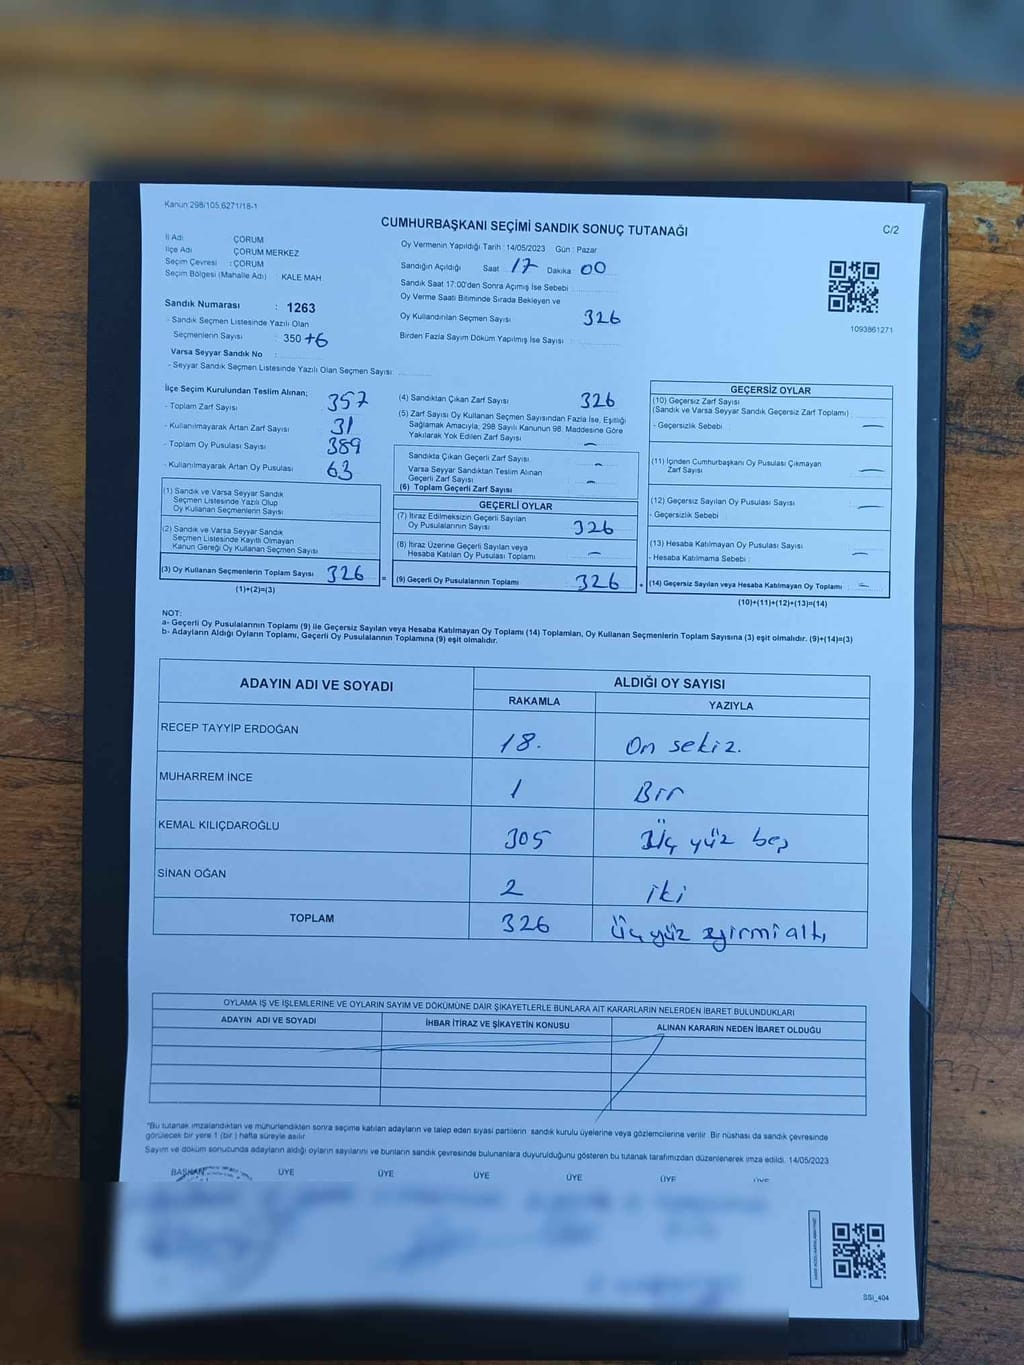 Kanun 298/105,6271/18-1
CUMHURBAŞKANI SEÇİMİ SANDIK SONUÇ TUTANAĞI
C/2
İl Adı ÇORUM
İlçe Adı ÇORUM MERKEZ
Seçim Çevresi : ÇORUM
Seçim Bölgesi (Mahalle Adı) KALE MAH
Sandık Numarası : 1263
- Sandık Seçmen Listesinde Yazılı Olan
Seçmenlerin Sayısı : 350 +6
Varsa Seyyar Sandık No :
- Seyyar Sandık Seçmen Listesinde Yazılı Olan Seçmen Sayısı
Oy Vermenin Yapıldığı Tarih : 14/05/2023 Gün : Pazar
Sandığın Açıldığı Saat 17 Dakika 00
Sandık Saat 17:00'den Sonra Açımış İse Sebebi
Oy Verme Saati Bitiminde Sırada Bekleyen ve
Oy Kullandırılan Seçmen Sayısı 326
Birden Fazla Sayım Döküm Yapılmış İse Sayısı :
1093861271
İlçe Seçim Kurulundan Teslim Alınan;
- Toplam Zarf Sayısı 357
- Kullanılmayarak Artan Zarf Sayısı 31
- Toplam Oy Pusulası Sayısı 389
- Kullanılmayarak Artan Oy Pusulası 63
(1) Sandık ve Varsa Seyyar Sandık
Seçmen Listesinde Yazılı Olup
Oy Kullanan Seçmenlerin Sayısı
(2) Sandık ve Varsa Seyyar Sandık
Seçmen Listesinde Kayıtlı Olmayan
Kanun Gereği Oy Kullanan Seçmen Sayısı
(3) Oy Kullanan Seçmenlerin Toplam Sayısı 326 =
(1)+(2)=(3)
(4) Sandıktan Çıkan Zarf Sayısı 326
(5) Zarf Sayısı Oy Kullanan Seçmen Sayısından Fazla İse, Eşitliği
Sağlamak Amacıyla, 298 Sayılı Kanunun 98. Maddesine Göre
Yakılarak Yok Edilen Zarf Sayısı –
Sandıkta Çıkan Geçerli Zarf Sayısı –
Varsa Seyyar Sandıktan Teslim Alınan
Geçerli Zarf Sayısı –
(6) Toplam Geçerli Zarf Sayısı
GEÇERLİ OYLAR
(7) İtiraz Edilmeksizin Geçerli Sayılan
Oy Pusulalarının Sayısı 326
(8) İtiraz Üzerine Geçerli Sayılan veya
Hesaba Katılan Oy Pusulası Toplamı –
(9) Geçerli Oy Pusulalarının Toplamı 326
GEÇERSİZ OYLAR
(10) Geçersiz Zarf Sayısı
(Sandık ve Varsa Seyyar Sandık Geçersiz Zarf Toplamı)
- Geçersizlik Sebebi –
(11) İçinden Cumhurbaşkanı Oy Pusulası Çıkmayan
Zarf Sayısı –
(12) Geçersiz Sayılan Oy Pusulası Sayısı –
- Geçersizlik Sebebi
(13) Hesaba Katılmayan Oy Pusulası Sayısı –
- Hesaba Katılmama Sebebi
(14) Geçersiz Sayılan veya Hesaba Katılmayan Oy Toplamı –
(10)+(11)+(12)+(13)=(14)
NOT:
a- Geçerli Oy Pusulalarının Toplamı (9) ile Geçersiz Sayılan veya Hesaba Katılmayan Oy Toplamı (14) Toplamları, Oy Kullanan Seçmenlerin Toplam Sayısına (3) eşit olmalıdır. (9)+(14)=(3)
b- Adayların Aldığı Oyların Toplamı, Geçerli Oy Pusulalarının Toplamına (9) eşit olmalıdır.
ADAYIN ADI VE SOYADI
ALDIĞI OY SAYISI
RAKAMLA YAZIYLA
RECEP TAYYİP ERDOĞAN 18. On sekiz.
MUHARREM İNCE 1 Bir
KEMAL KILIÇDAROĞLU 305 Üç yüz beş
SİNAN OĞAN 2 iki
TOPLAM 326 Üç yüz yirmi altı
OYLAMA İŞ VE İŞLEMLERİNE VE OYLARIN SAYIM VE DÖKÜMÜNE DAİR ŞİKAYETLERLE BUNLARA AİT KARARLARIN NELERDEN İBARET BULUNDUKLARI
ADAYIN ADI VE SOYADI İHBAR İTİRAZ VE ŞİKAYETİN KONUSU ALINAN KARARIN NEDEN İBARET OLDUĞU
*Bu tutanak imzalandıktan ve mühürlendikten sonra seçime katılan adayların ve talep eden siyasi partilerin sandık kurulu üyelerine veya gözlemcilerine verilir. Bir nüshası da sandık çevresinde
görülecek bir yere 1 (bir ) hafta süreyle asılır
Sayım ve döküm sonucunda adayların aldığı oyların sayılarını ve bunların sandık çevresinde bulunanlara duyurulduğunu gösteren bu tutanak tarafımızdan düzenlenerek imza edildi. 14/05/2023
BAŞKAN ÜYE ÜYE ÜYE ÜYE ÜYE ÜYE
SSI_404